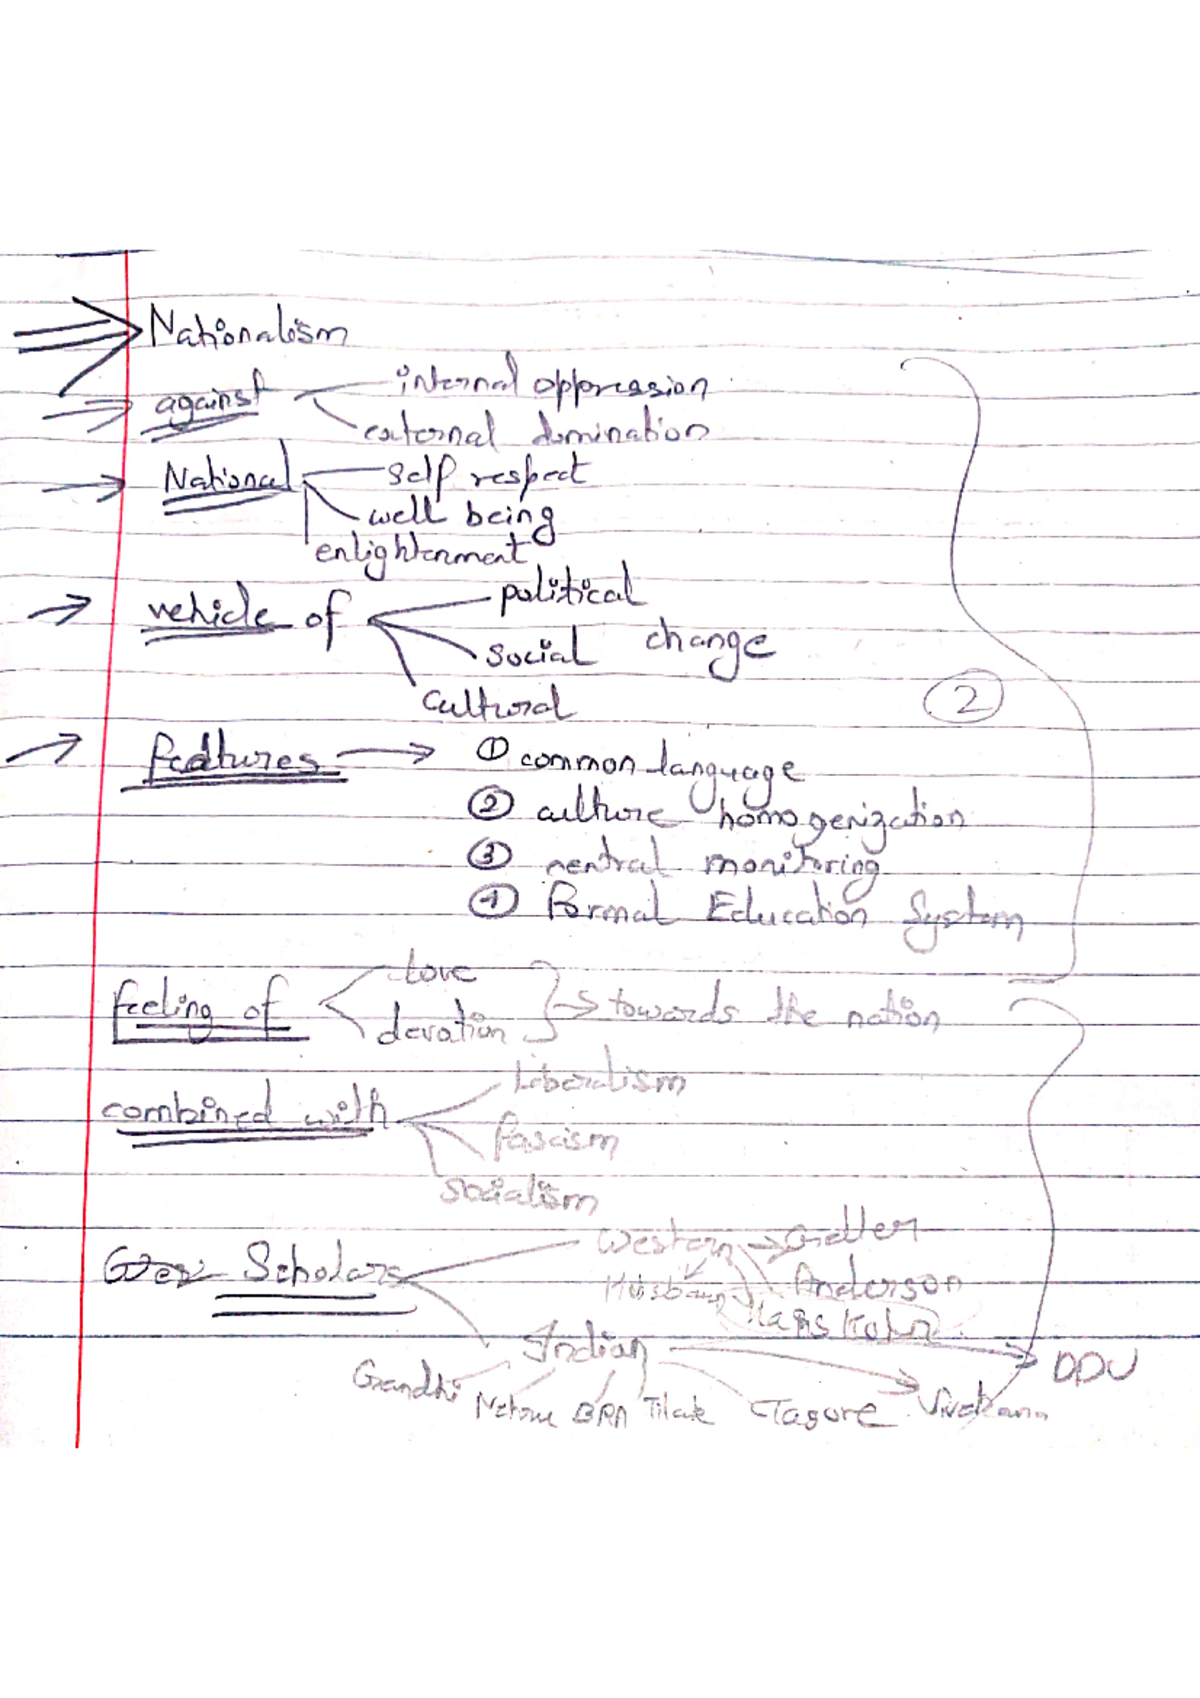 Nationalism
against internal oppression
external domination
National self respect
well being
enlightenment
vehicle of political
social change
cultural
2
features ① common language
② culture homogenization
③ central monitoring
④ Formal Education System
feeling of Love
devotion towards the nation
combined with Liberalism
fascism
socialism
Western Gellner
Scholars Anderson
Hans Kohn
Indian DDU
Gandhi Nehru BRA Tilak Tagore